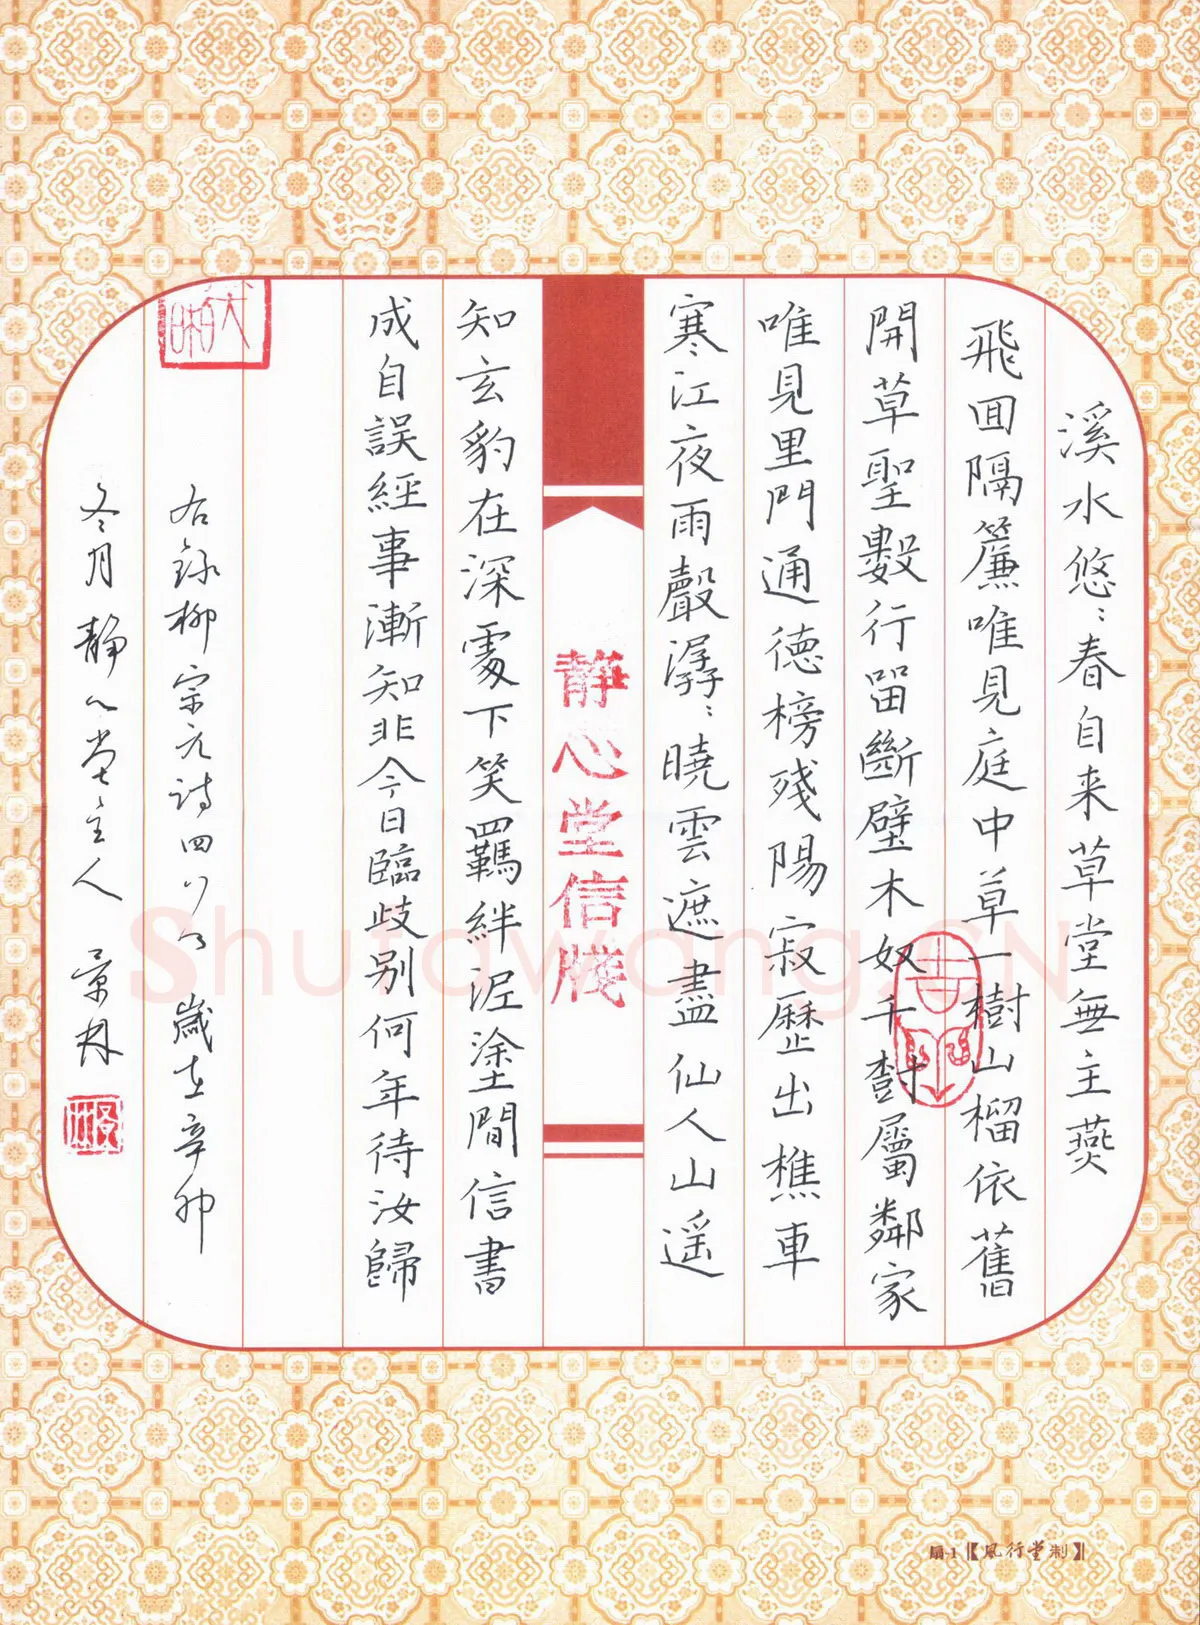 溪水悠〻春自来草堂無主燕
飛囬隔簾唯見庭中草一樹山榴依舊
開草聖數行留斷壁木奴千樹屬鄰家
唯見里門通德榜殘陽寂歷出樵車
寒江夜雨聲潺〻曉雲遮盡仙人山遥
知玄豹在深處下笑羈絆泥塗間信書
成自誤經事漸知非今日臨歧别何年待汝歸
右錄柳宗元詩四首 歲在辛卯
冬月靜心堂主人 景林
靜心堂信牋
Shufawang.CN
扇-1【風行堂制】